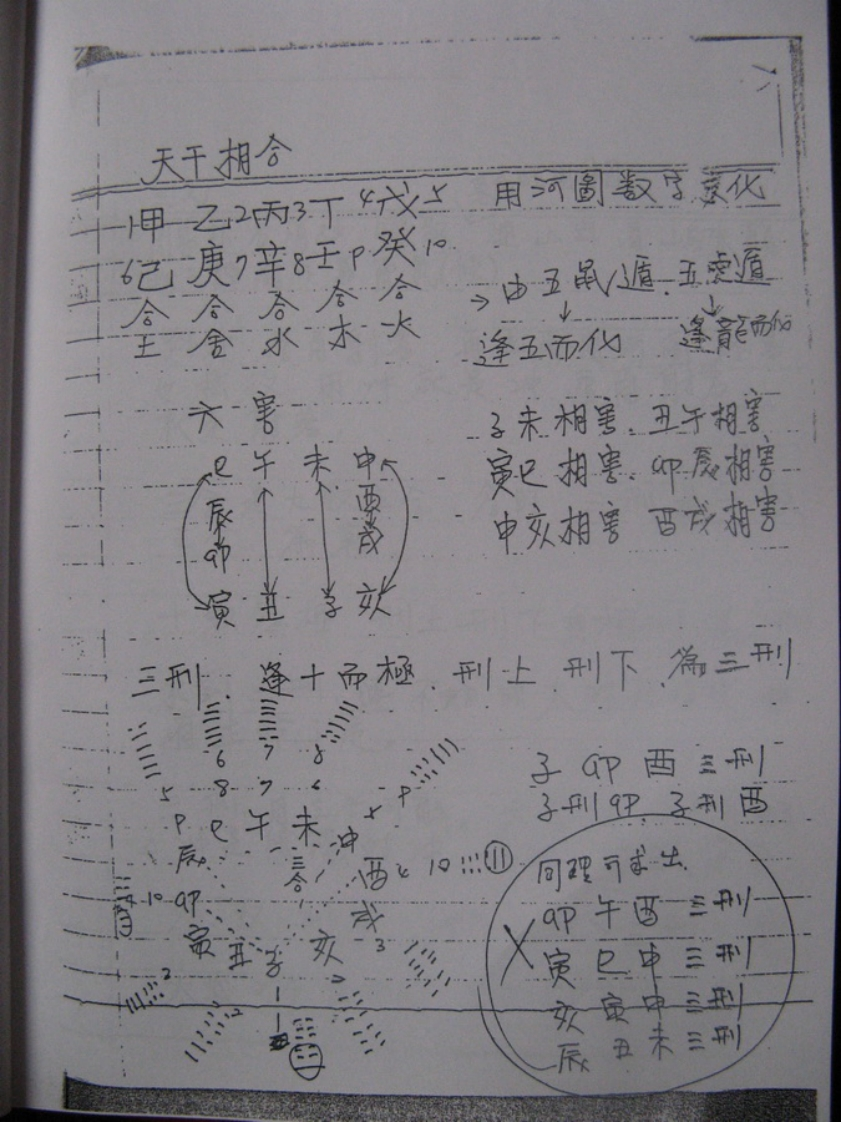 天干相合
1甲 乙2丙3丁4戊5
6己 庚7辛8壬9癸10
合 合 合 合 合
土 金 水 木 火
用河圖數字変化
→由五鼠遁.五虎遁
↓ ↓
逢五而化 逢龍而化
六害
巳 午 未 申
辰 酉
卯 戌
寅 丑 子 亥
子未相害.丑午相害
寅巳相害.卯辰相害
申亥相害 酉戌相害
三刑.逢十而極.刑上 刑下.為三刑
6 7 8
5 8 7 6
9 巳 午 未 申 9
辰 三合
10 卯 酉 4 10
寅 丑 子 亥 戌 3
2
子卯酉三刑
子刑卯.子刑酉
同理可求出
卯午酉三刑
寅巳申三刑
亥寅申三刑
辰丑未三刑